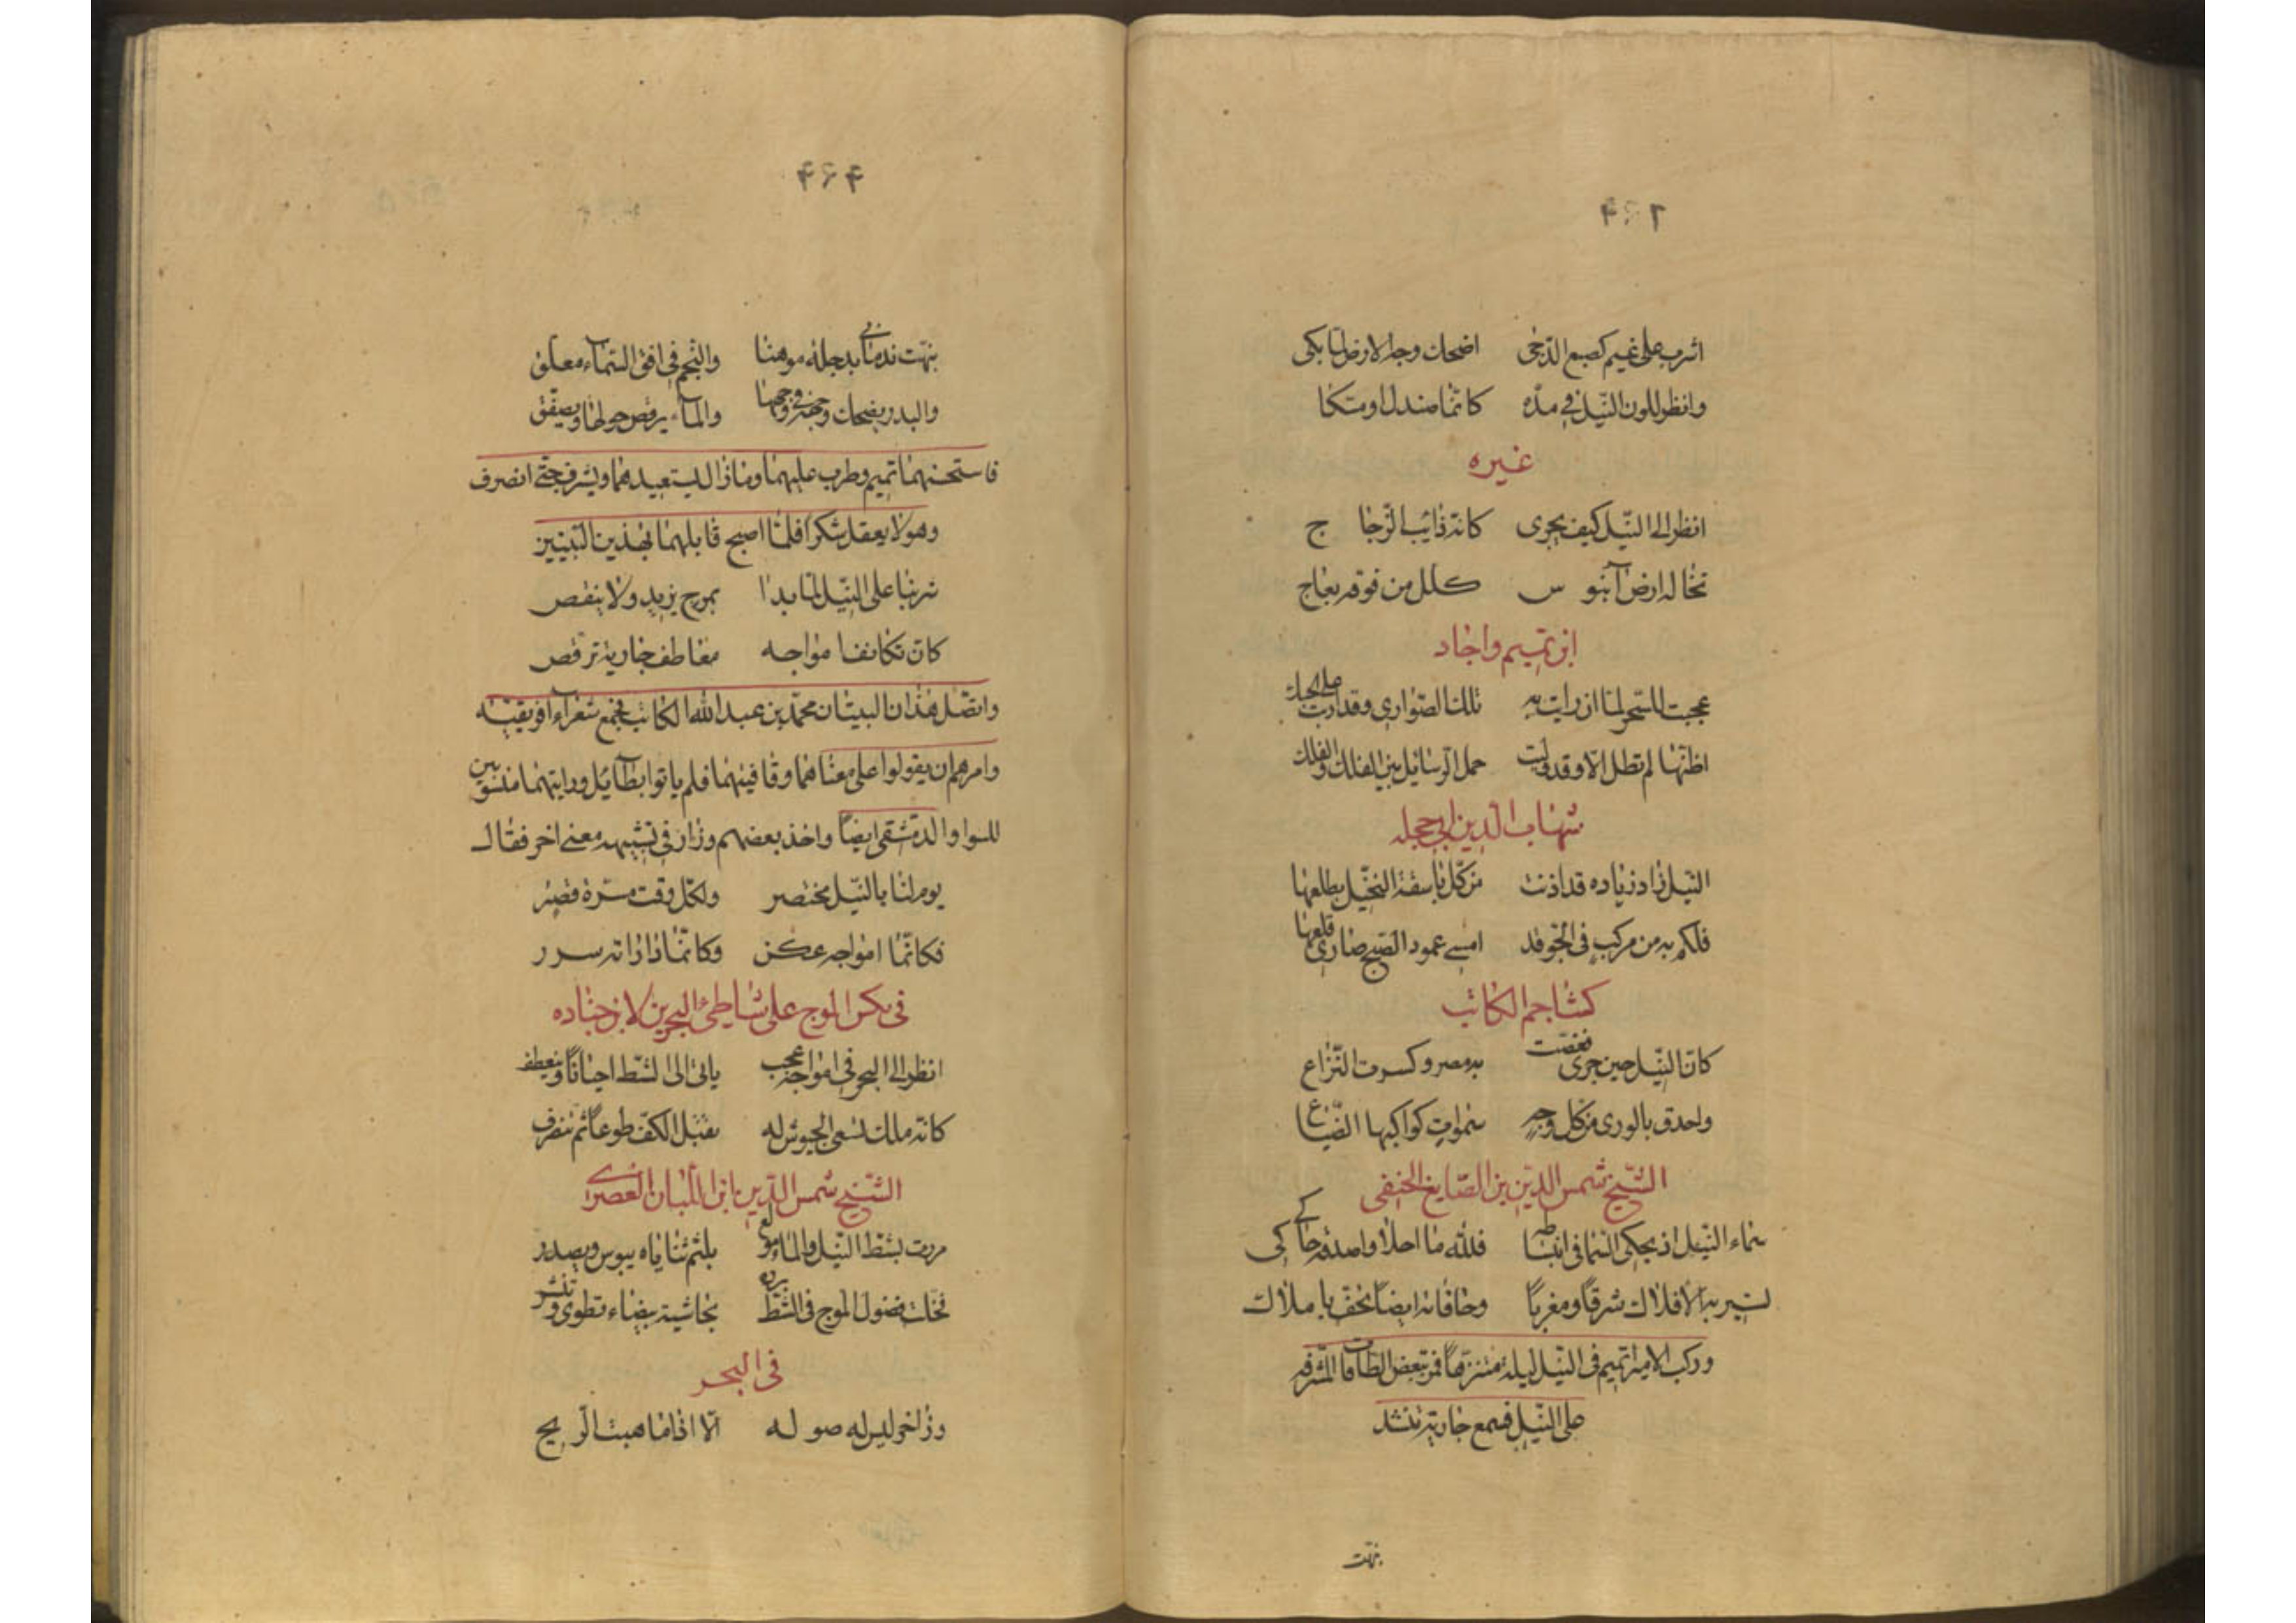 ۴۶۲
اشرب على غيم كصبغ الدّجى اضحك وجه الارض لما بكى
وانظر للون النّيل فى مدّه كانّما صندل او متكا
غيره
انظر الى النّيل كيف يجرى كانّه ذائب الزّجا ج
تخاله ارض آبنو س كلل من فوقه بعاج
ابن تميم واجاد
عجبت للسّحر لما ان رايت به تلك الصّوارى وقد ارب على الحبك
اظنّها لم تطل الّا وقد وليت حمل الرّسائل بين الفلك والفلك
شهاب الدين ابى حجله
النّيل زاد زياده قد اذنت من كل باسقة النخيل بطلعها
فلكم به من مركب فى الجّو قد امسى عمود الصّبح صارى قلعها
كشاجم الكاتب
كانّ النّيل حين جرى ففضّت به مصر وكسرت التّراع
واحدق بالورى من كل وجه سموات كواكبها الضّياع
الشّيخ شمس الدّين بن الصّايغ الحنفى
سماء النّيل اذ يحكى السّما فى انبساطه فللّه ما احلا واصدقه حاكى كى
تسير به الافلاك شرقًا ومغربًا وحافاته ايضًا تحف باملاك
وركب الامير تميم فى النّيل ليلة متنزّهًا فمرّ ببعض الطاقات المشرفه
على النّيل فسمع جارية تنشد
نبّهت
۴۶۴
نبّهت ندمانى بدجلة موهنا والنّجم فى افق السّماء معلّق
والبدر يضحك وجهه فى وجهها والماء يرقص حولها ويصفّق
فاستحسنهما تميم وطرب عليهما وما زال يستعيدهما ويشرف حتّى انصرف
وهو لا يعقل شكرا فلمّا اصبح قابلهما بهذين البيتين
شربنا على النّيل لمّا بدا بموج يزيد ولا ينقص
كانّ تكاثف امواجه معاطف جارية ترقص
واتصّل هذان البيتان محمّد بن عبد الله الكاتب فجمع شعراء افريقيّه
وامرهم ان يقولوا على معناهما وقافيتهما فلم ياتوا بطائل ورايتهما منسوبين
للواوا الدّمشقى ايضًا واخذ بعضهم وزاد فى تشبيهه معنى اخر فقال
يوم لنا بالنّيل مختصر ولكل وقت مسّرة قصر
فكانّما امواجه عكن وكانّما داراته سرر
فى تكسّر الموج على شاطئ البحرين لابن جباده
انظر الى البحر فى امواجه عجب ياتى الى الشّط احيانًا وينعطف
كانّه ملك تسعى الجيوش له تقبّل الكفّ طوعًا ثم تنصرف
الشّيخ شمس الدّين ابن اللّبان العصرى
مررت بشطّ النّيل والماء مولع بلثم ثناياه يبوس ويصدر
فخلت فضول الموج فى الشّط برده بحاشية بيضاء تطوى وتنشر
فى البحر
وزاخر ليس له صو له الّا اذا ما هبت الرّيح